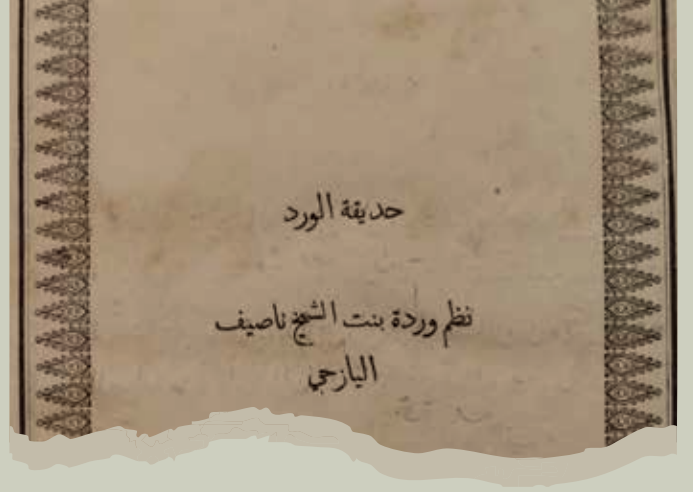 حديقة الورد
نظم وردة بنت الشيخ ناصيف
اليازجي